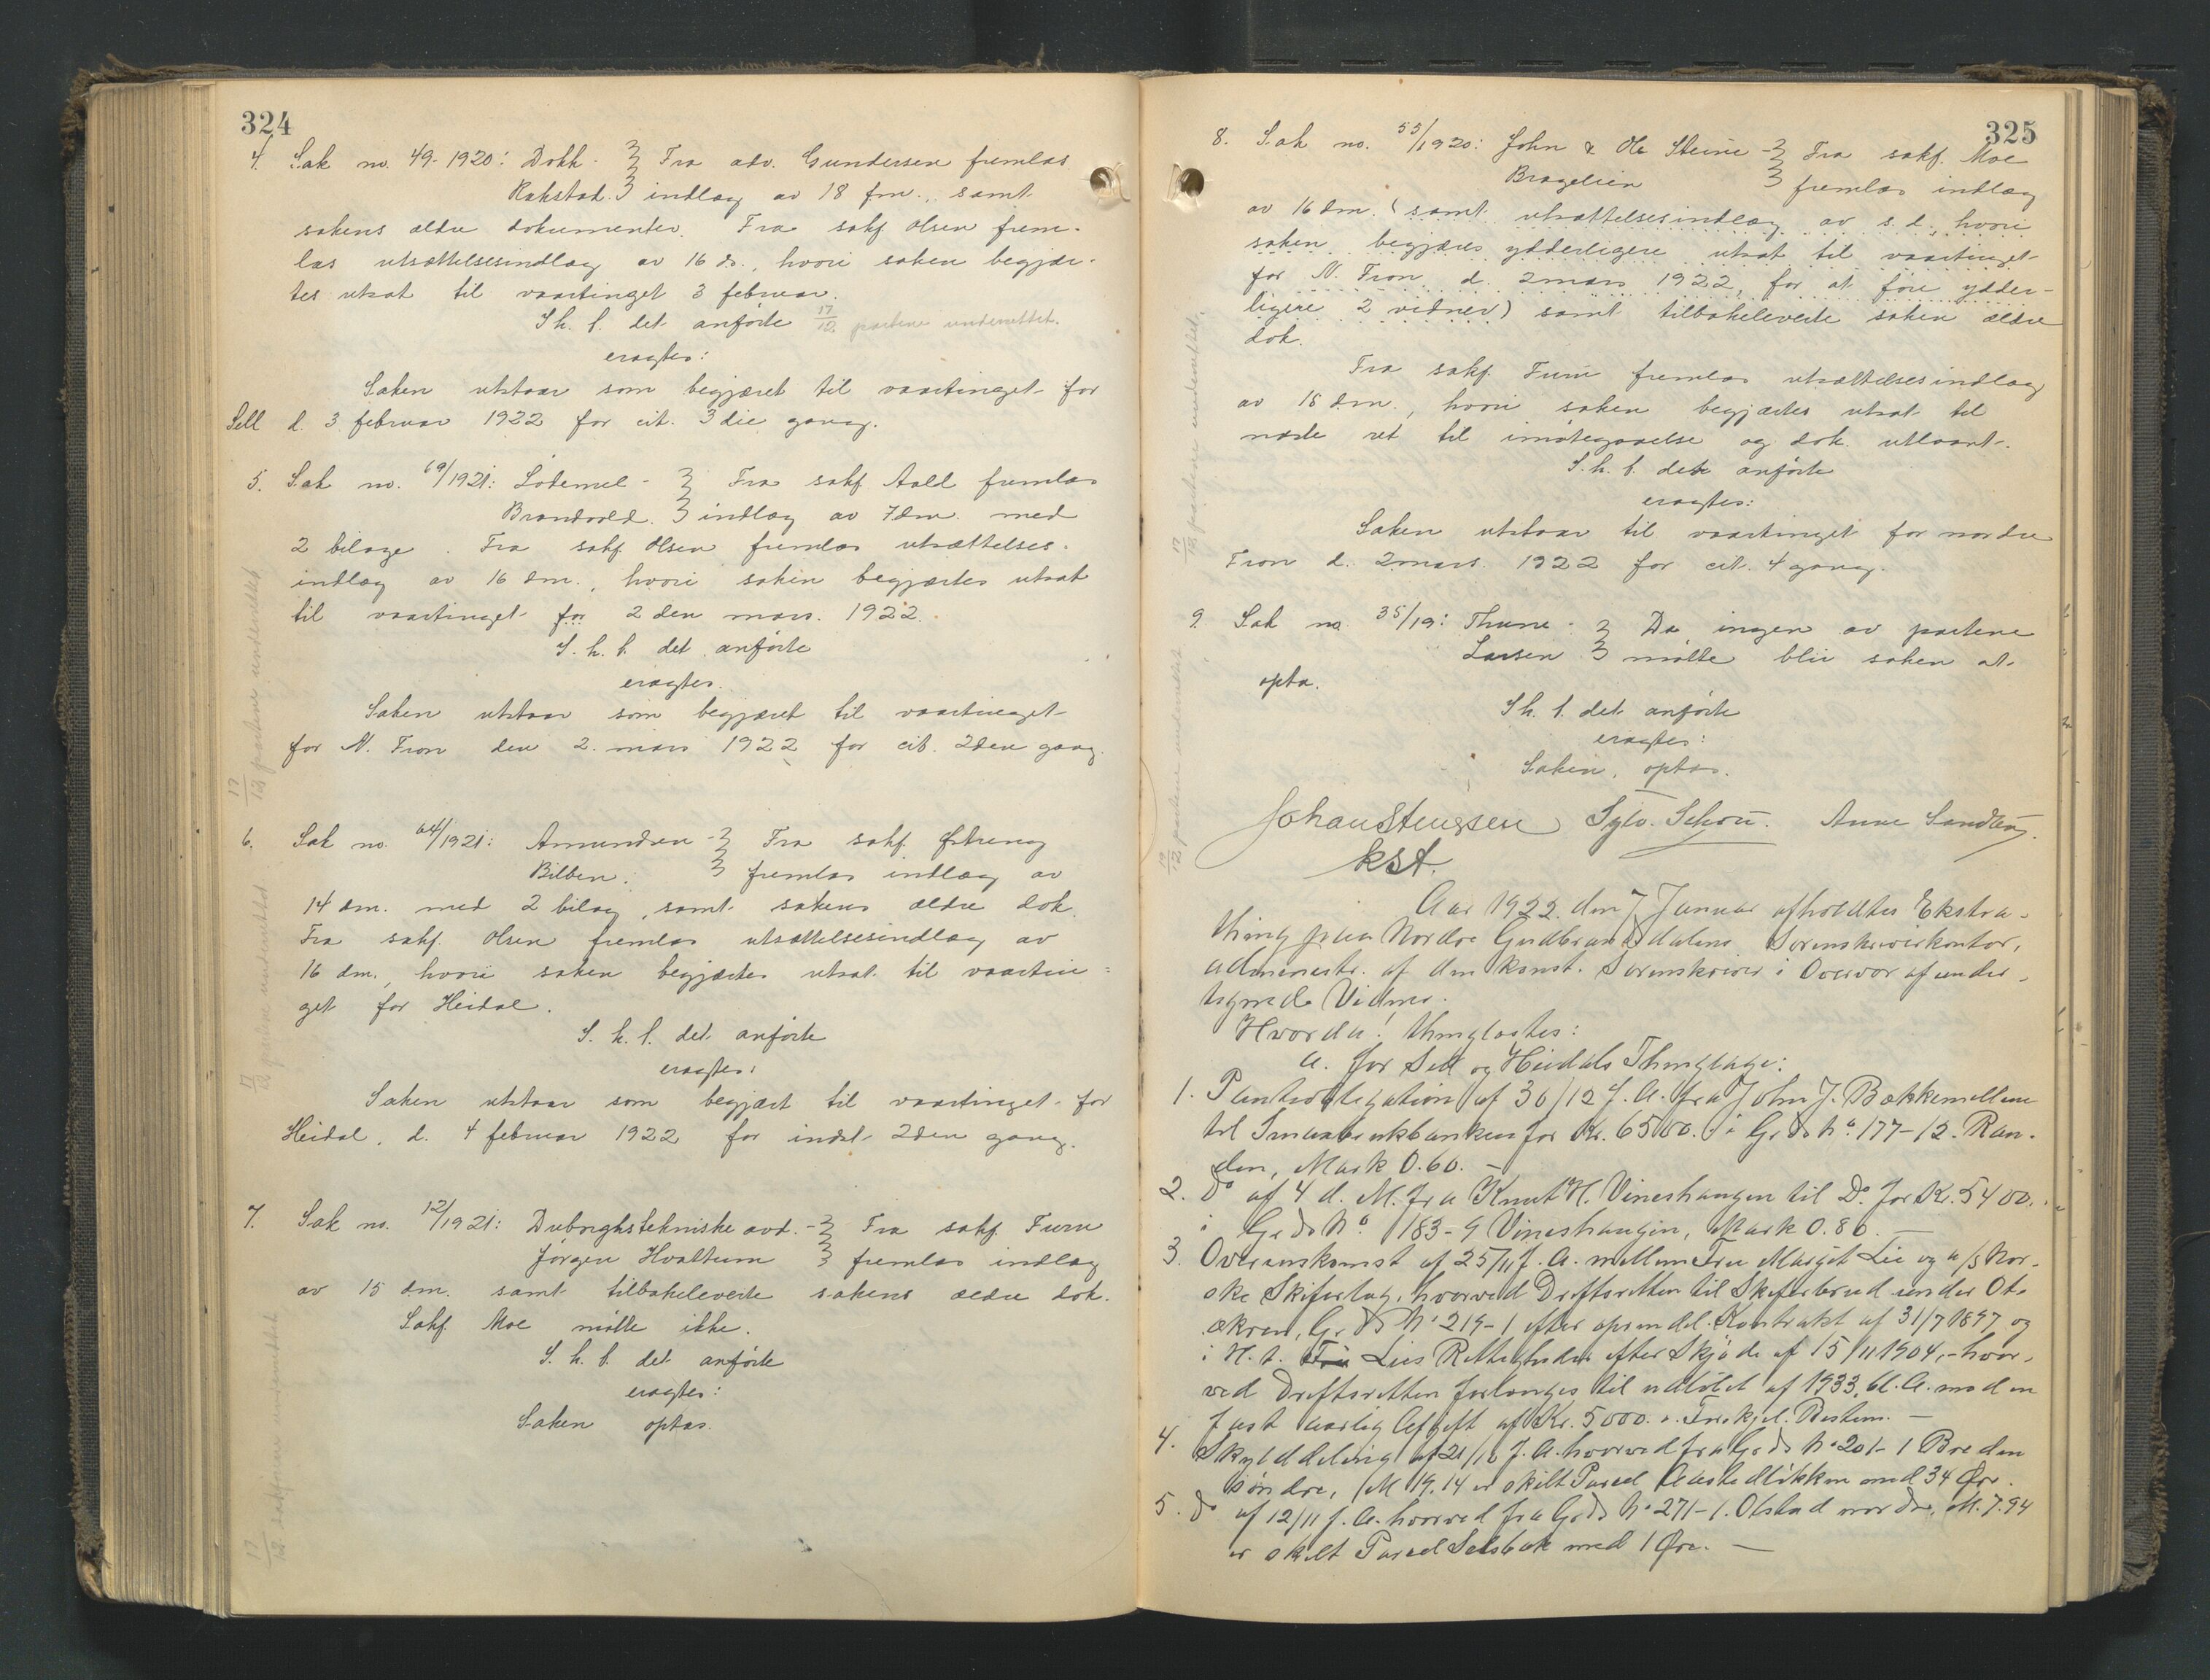 324
4. Sak no. 49-1920: Dokk - } Fra adv. Gundersen fremlas
Rakstad. } indlæg av 18 fm., samt
sakens ældre dokumenter. Fra sakf. Olsen frem-
las utsættelsesindlæg av 16 ds., hvori saken begjær-
tes utsat til vaartinget 3 februar.
S. h. l. det anførte 17/12 partene underrettet.
eragtes:
Saken utstaar som begjæret til vaartinget for
Sell d. 3 februar 1922 for cit. 3die gang.
5. Sak no. 69/1921: Lodemel - } Fra sakf. Aald fremlas
Brandvold. } indlæg av 7 dm. med
2 bilage. Fra sakf. Olsen fremlas utsættelses-
indlæg av 16 dm., hvori saken begjærtes utsat
til vaartinget for 2den mars. 1922.
S. h. l. det anførte
eragtes.
Saken utstaar som begjæret til vaartinget
for N. Fron den 2. mars 1922 for cit. 2den gang.
17/12 partene underrettet
6. Sak no. 64/1921: Amundsen - } Fra sakf. Østreng
Bilben. } fremlas indlæg av
14 dm. med 2 bilag, samt sakens ældre dok.
Fra sakf. Olsen fremlas utsættelsesindlæg av
16 dm., hvori saken begjærtes utsat til vaartin=
get for Heidal.
S. h. l. det anførte
eragtes:
Saken utstaar som begjært til vaartinget for
Heidal, d. 4 februar 1922 for indst. 2den gang.
17/12 partene underrettet
7. Sak no. 12/1921: Dubrighs tekniske avd. - } Fra sakf. Furu
Jørgen Hvattum } fremlas indlæg
av 15 dm. samt tilbakeleverte sakens ældre dok.
Sakf. Moe møtte ikke.
S. h. l. det anførte
eragtes:
Saken optas.
17/12 underrettet
325
8. Sak no. 55/1920: John & Ole Steine - } Fra sakf. Moe
Bragelien } fremlas indlæg
av 16 dm. (samt utsættelsesindlæg av s. d., hvori
saken begjæres ydderligere utsat til vaartinget
for N. Fron d. 2 mars 1922, for at føre ydder-
ligere 2 vidner) samt tilbakeleverte saken ældre
dok.
Fra sakf. Furu fremlas utsættelsesindlæg
av 15 dm., hvori saken begjærtes utsat til
næste ret til imøtegaaelse og dok. utlaant.
S. h. l. det anførte
eragtes:
Saken utstaar til vaartinget for nordre
Fron d. 2 mars. 1922 for cit. 4 gang.
17/12 partene underrettet.
9. Sak no. 35/19: Thune - } Da ingen av partene
Larsen } møtte blir saken at
opta.
S. h. l. det anførte
eragtes:
Saken optas.
17/12 partene underrettet
Johan Stenssen Sylv. Schou. Anne Sandbu.
kst.
Aar 1922 den 7 Januar afholdtes Ekstra-
thing paa Nordre Gudbrandsdalens Sorenskriverkontor,
administr. af den konst. Sorenskriver i Overvær af under-
tegnede Vidner.
Hvorda! thinglæstes:
a. for Sell og Heidals Thinglage:
1. Pantobligation af 30/12 f. A. fra John J. Bækkemellem
til Smaabrukbanken for Kr. 6500. i Grds No. 177-12. Ran-
den, Mark 0.60. -
2. Do af 4 d. M. fra Knut H. Vineshaugen til Do for Kr. 5400.
i Grds No. 183-9 Vineshaugen, Mark 0.86. -
3. Overenskomst af 25/11 f. A. mellem Fru Margit Lie og a/s Nor-
ske Skiferlag, hvorved Driftsretten til Skiferbrud under Ot-
ækren, Grds No 219-1 efter oprindel. Kontrakt af 31/7 1897 og
i H. t. Fru Lies Rettigheder efter Skjøde af 15/11 1904, - hvor-
ved Driftsretten forlænges til utløbet af 1933, bl. A. mod en
fast aarlig Afgift af Kr. 5000. o. Forskjel. Bestem. -
4. Skylddeling af 21/10 f. A. hvorved fra Grds No 201-1 Breden
søndre, M 19.14 er skilt Parcel Aastadløkken med 34 Øre.
5. Do af 12/11 f. A. hvorved fra Grds No 271-1. Olstad nordre, M. 7.94
er skilt Parcel Selsbak med 1 Øre. -